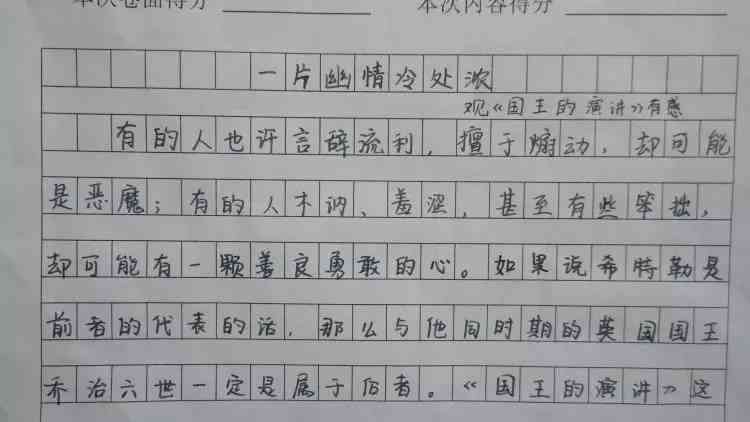 本次卷面得分
本次内容得分
一片幽情冷处浓
观《国王的演讲》有感
有的人也许言辞流利，擅于煽动，却可能
是恶魔；有的人木讷、羞涩，甚至有些笨拙，
却可能有一颗善良勇敢的心。如果说希特勒是
前者的代表的话，那么与他同时期的英国国王
乔治六世一定是属于后者。《国王的演讲》这